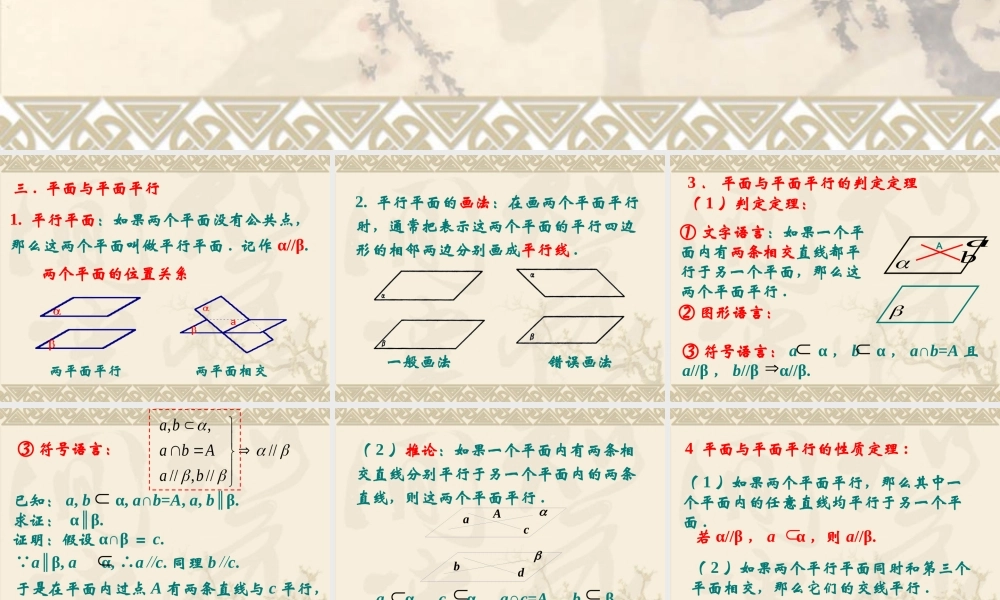 三．平面与平面平行
1. 平行平面：如果两个平面没有公共点，
那么这两个平面叫做平行平面．记作 α//β.
两个平面的位置关系
α
β
α
β
a
两平面平行
两平面相交
2. 平行平面的画法：在画两个平面平行
时，通常把表示这两个平面的平行四边
形的相邻两边分别画成平行线．
α
β
α
β
一般画法
错误画法
3． 平面与平面平行的判定定理
（1）判定定理：
① 文字语言：如果一个平
面内有两条相交直线都平
行于另一个平面，那么这
两个平面平行．
② 图形语言：
A
a
b
α
β
③ 符号语言： a⊂ α ， b⊂ α ， a∩b=A 且
a//β ， b//β ⇒α//β.
③ 符号语言：
a,b ⊂ α,
a∩b = A
a // β,b // β
⇒ α // β
已知： a, b ⊂ α, a∩b=A, a, b∥β.
求证： α∥β.
证明：假设 α∩β = c.
∵a∥β, a ⊂ α, ∴a //c. 同理 b //c.
于是在平面内过点 A 有两条直线与 c 平行，
（2）推论：如果一个平面内有两条相
交直线分别平行于另一个平面内的两条
直线，则这两个平面平行．
a
A
α
c
b
β
d
a ⊂ α c ⊂ α a∩c=A b ⊂ β
4 平面与平面平行的性质定理：
（1）如果两个平面平行，那么其中一
个平面内的任意直线均平行于另一个平
面．
若 α//β ， a ⊂ α ，则 a//β.
（2）如果两个平行平面同时和第三个
平面相交，那么它们的交线平行．